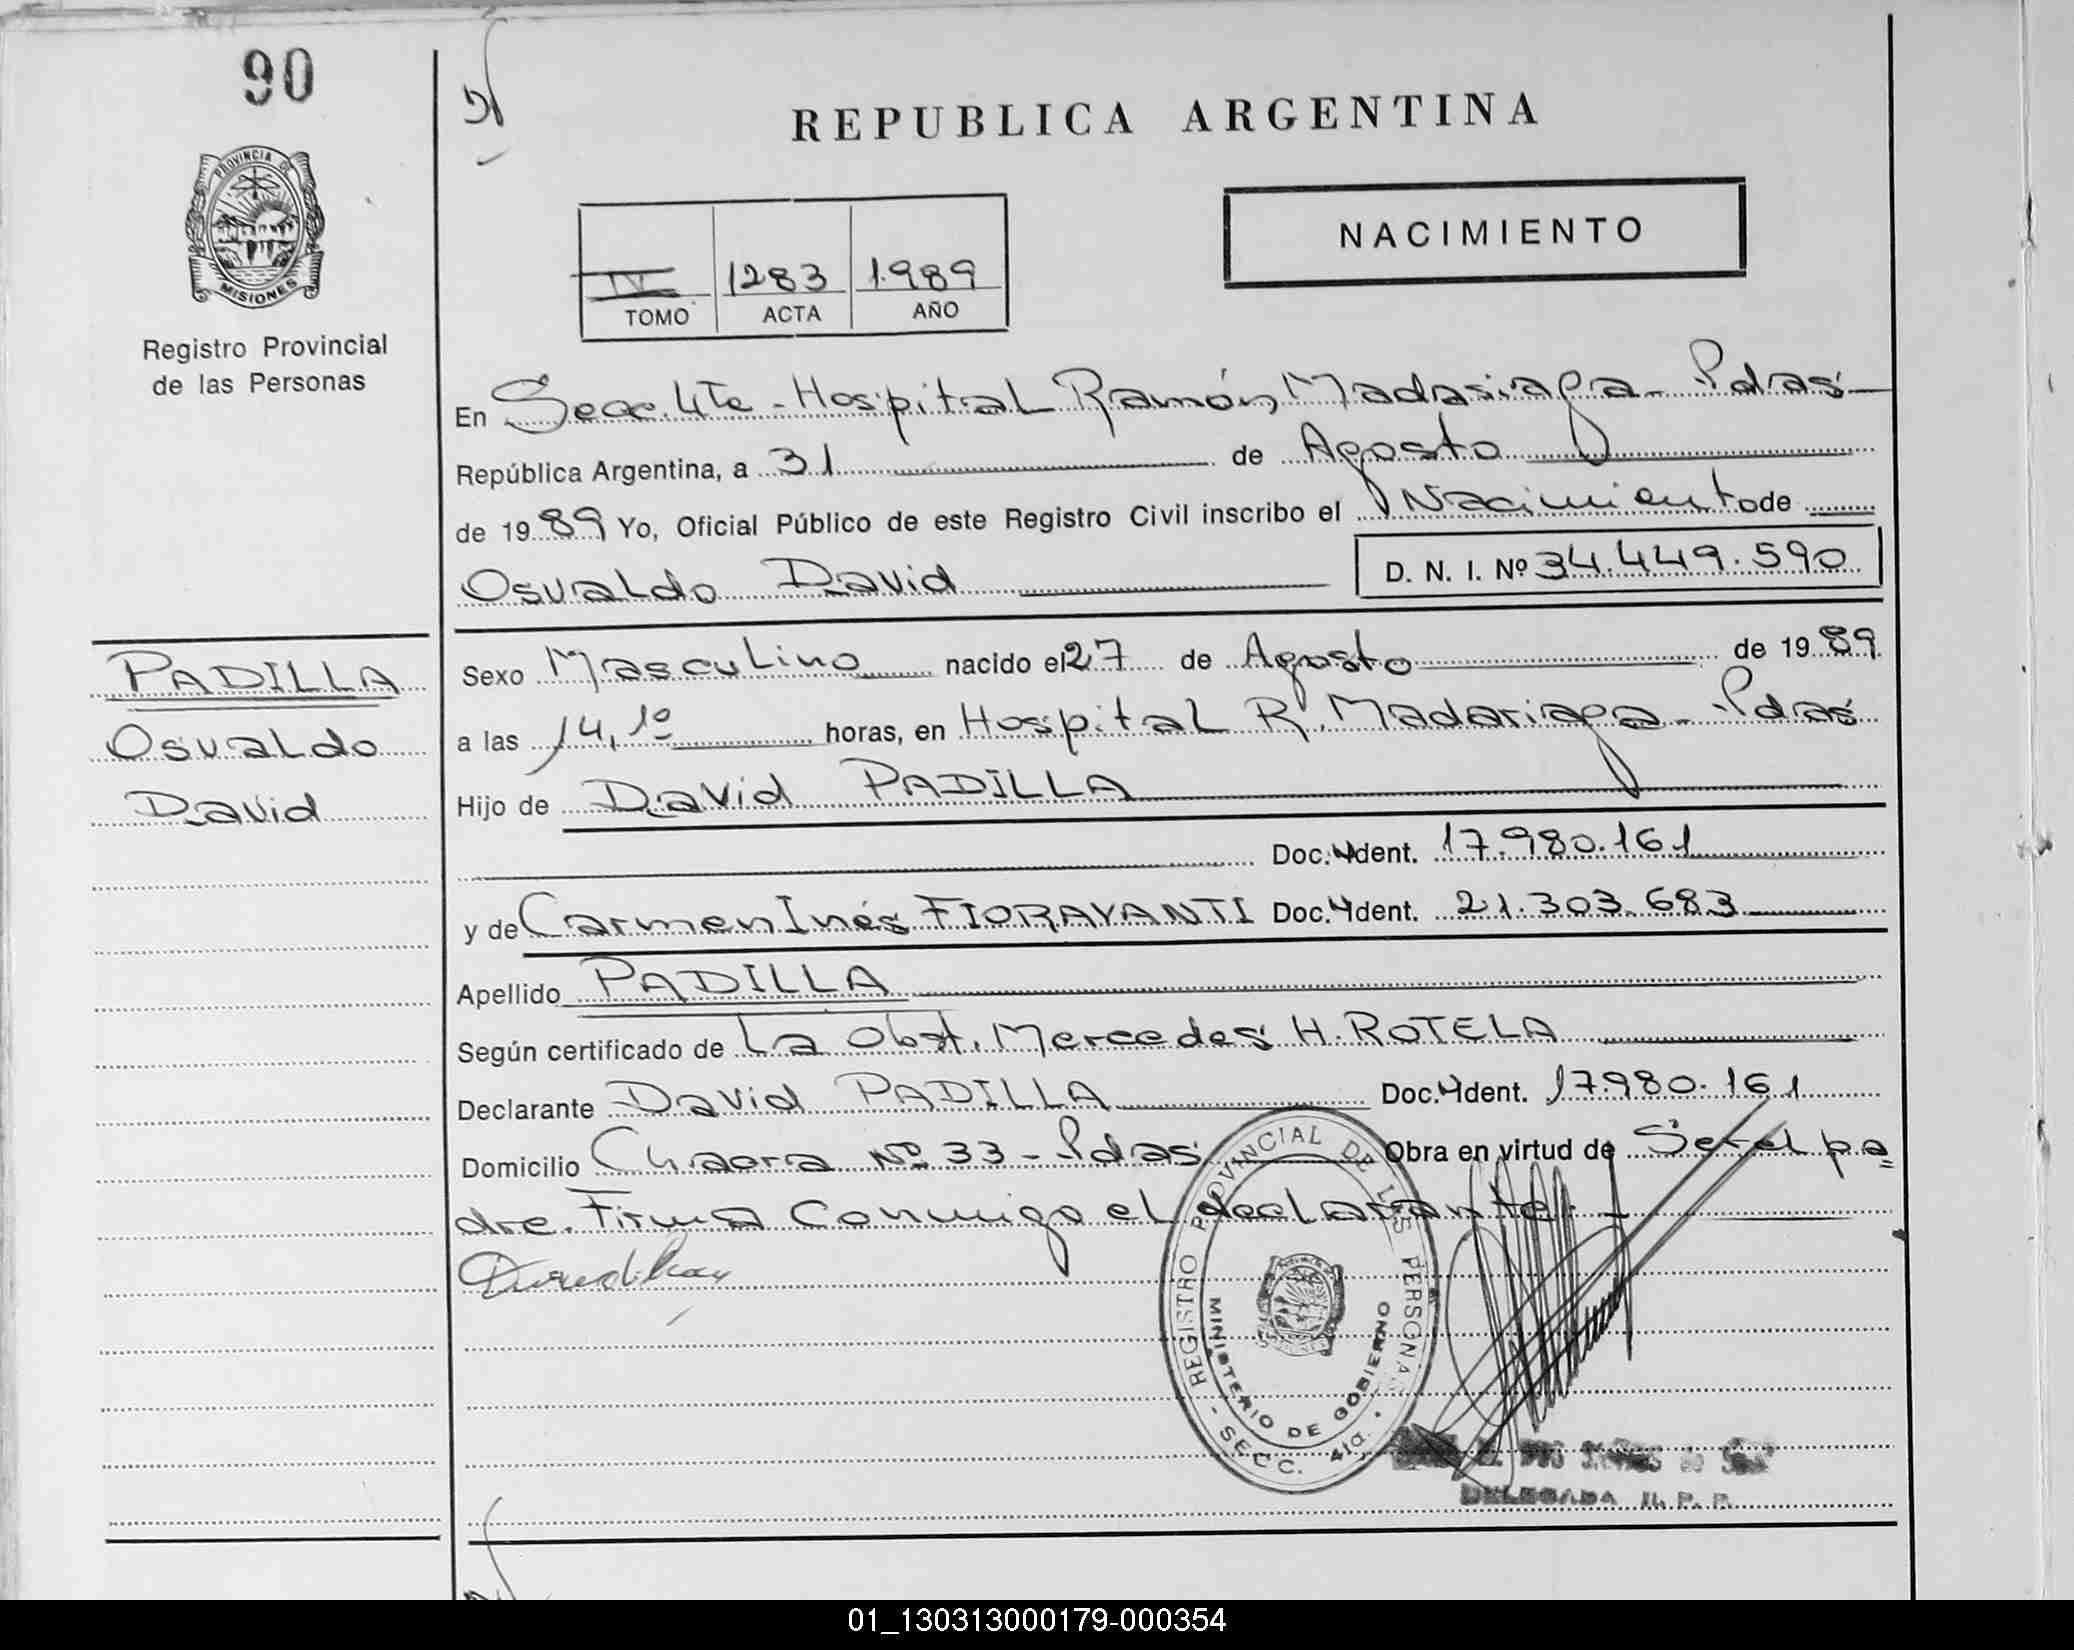 90
PROVINCIA DE
MISIONES
Registro Provincial
de las Personas
REPUBLICA ARGENTINA
NACIMIENTO
IV 1283 1.989
TOMO ACTA AÑO
En Secc. 4Te - Hospital Ramón Madariaga - Pdas -
República Argentina, a 31 de Agosto
de 1989 Yo, Oficial Público de este Registro Civil inscribo el Nacimiento de
Osvaldo David D. N. I. Nº 34.449.590
PADILLA
Osvaldo
David
Sexo Masculino nacido el 27 de Agosto de 1989
a las 14,10 horas, en Hospital R. Madariaga - Pdas
Hijo de David PADILLA
Doc. Ident. 17.980.161
y de Carmen Inés FIORAVANTI Doc. Ident. 21.303.683
Apellido PADILLA
Según certificado de La Obst. Mercedes H. ROTELA
Declarante David PADILLA Doc. Ident. 17.980.161
Domicilio Chacra Nº 33 - Pdas Obra en virtud de Ser el pa=
dre. Firma Conmigo el declarante. -
REGISTRO PROVINCIAL DE LAS PERSONAS
MINISTERIO DE GOBIERNO
- SECC. 4ta. -
DELEGADA R. P. P.
01_130313000179-000354